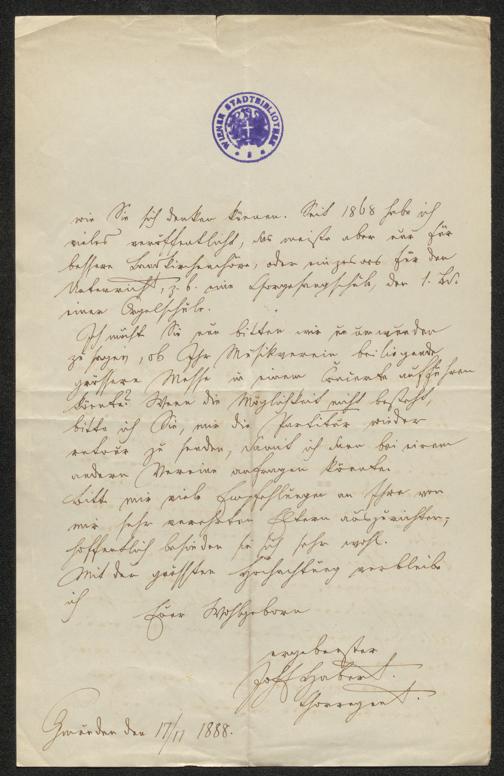 WIENER STADTBIBLIOTHEK
wie Sie sich denken können. Seit 1868 habe ich
vieles veröffentlicht, das meiste aber nur für
bessere Landkirchenchöre, oder einzelnes für den
Unterricht, z. b. eine Chorgesangschule, den 1. Bd.
einer Orgelschule.
Ich möchte Sie nun bitten mir unumwunden
zu sagen, ob Ihr Musikverein beiliegende
grössere Messe in einem Concerte aufführen
könnte? Wenn die Möglichkeit nicht besteht,
bitte ich Sie, mir die Partitur wieder
retour zu senden, damit ich dann bei einem
andern Vereine anfragen könnte.
Bitte mir viele Empfehlungen an Ihre von
mir sehr verehrten Eltern auszurichten,
hoffentlich befinden sie sich sehr wohl.
Mit der grössten Hochachtung verbleibe
ich Euer Wohlgeboren
ergebenster
Joh Habert.
Chorregent.
Gmunden den 17/11 1888.